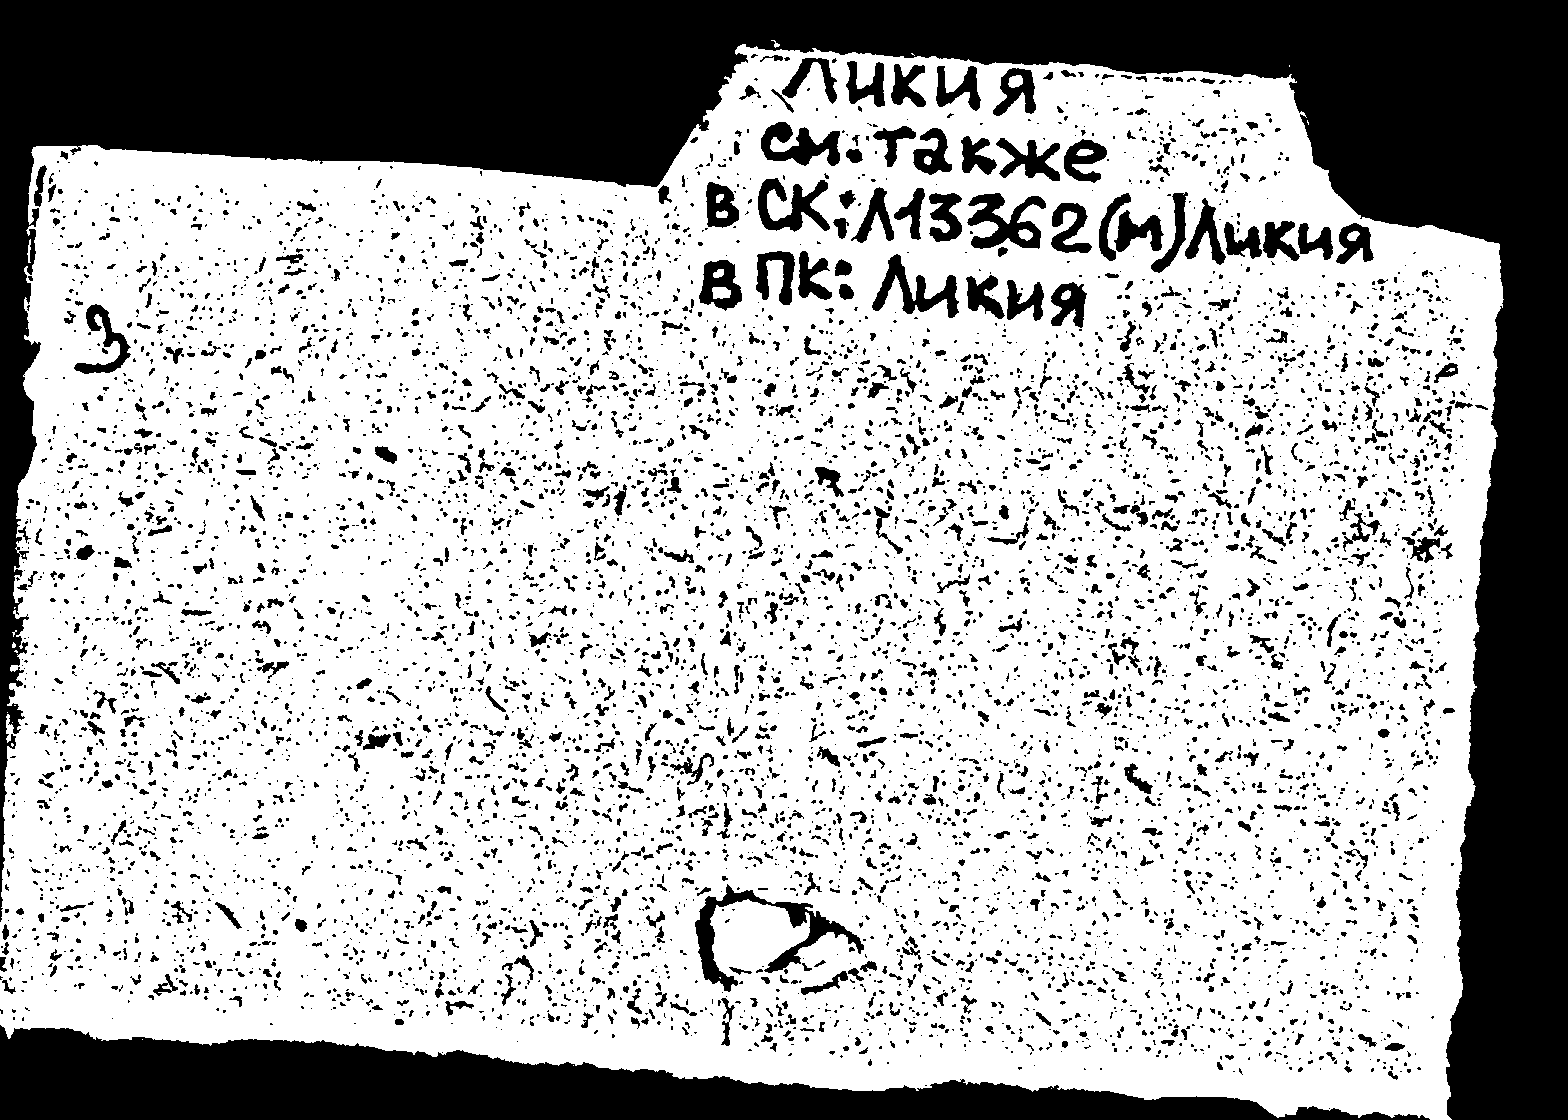 Ликия
см. также
в СК: Л13362(м) Ликия
в ПК: Ликия
3